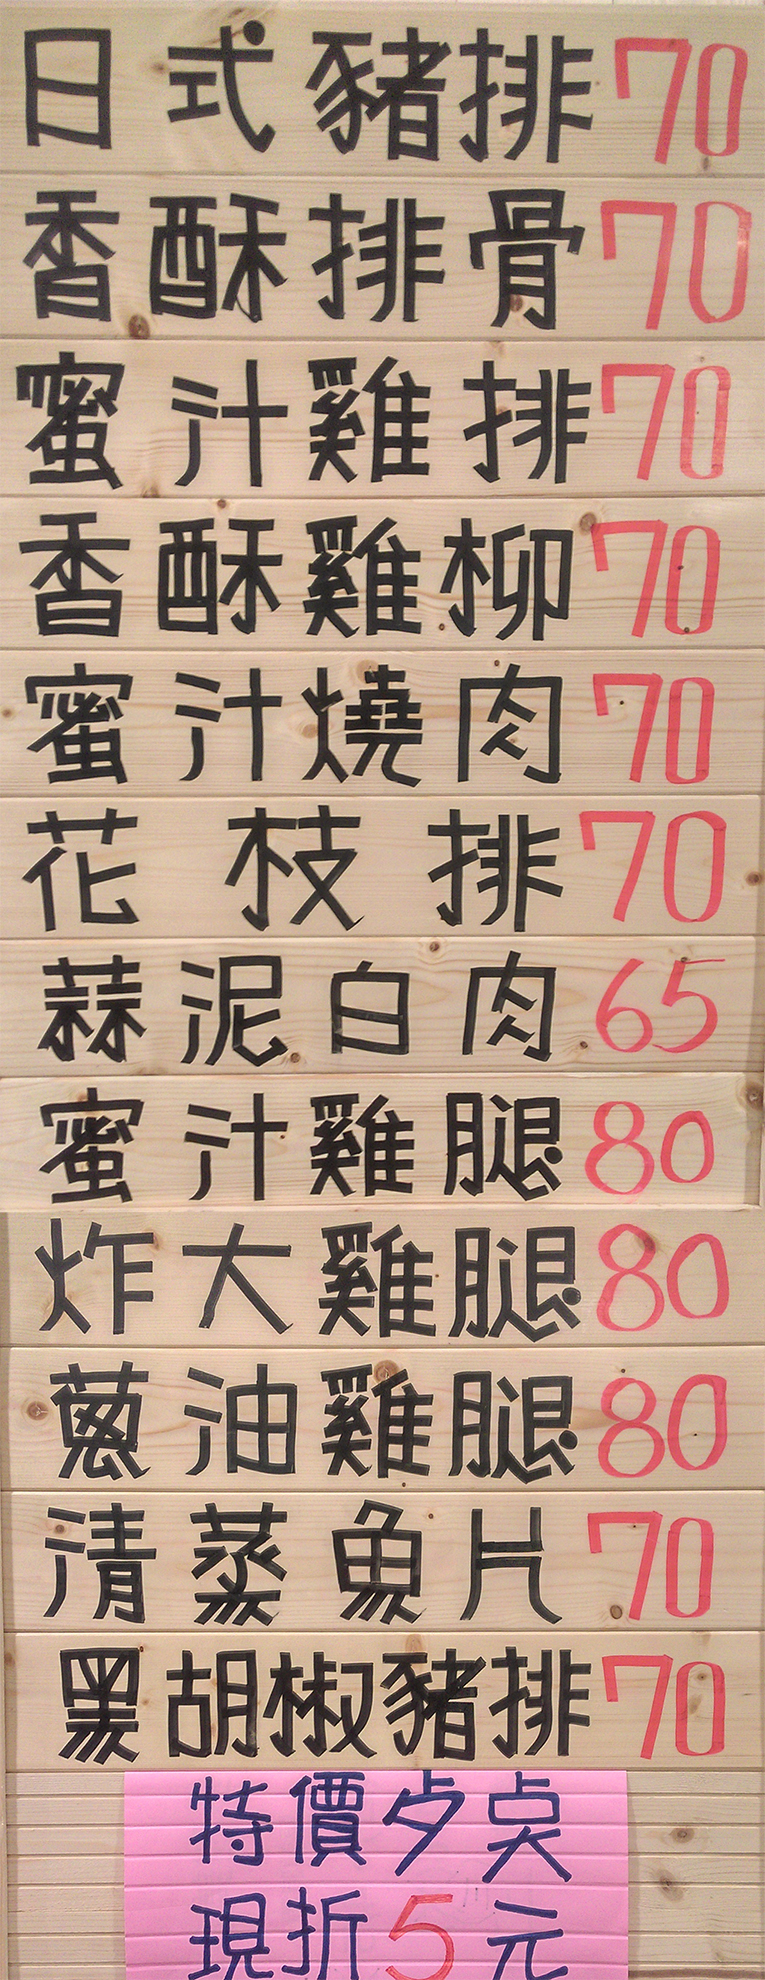 日式豬排70
香酥排骨70
蜜汁雞排70
香酥雞柳70
蜜汁燒肉70
花枝排70
蒜泥白肉65
蜜汁雞腿80
炸大雞腿80
蔥油雞腿80
清蒸魚片70
黑胡椒豬排70
特價少点
現折5元